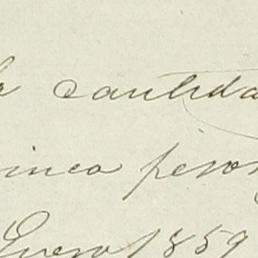 la cantida
inco pesos
Enero/1859